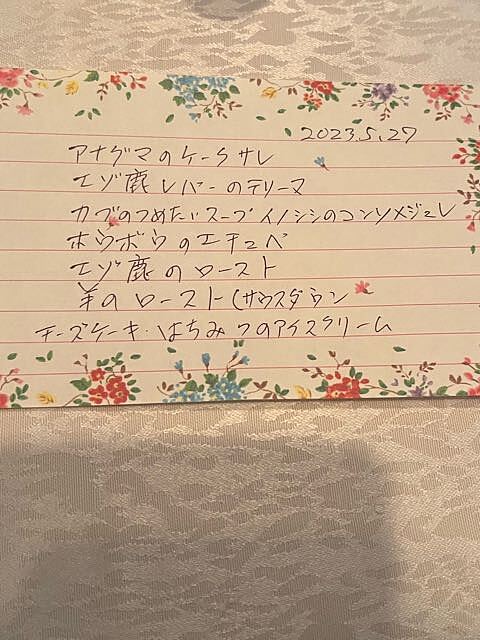 2023.5.27
アナグマのケークサレ
エゾ鹿レバーのテリーヌ
カブのつめたいスープイノシシのコンソメジュレ
ホウボウのエチュベ
エゾ鹿のロースト
羊のロースト(サウスダウン
チーズケーキ・はちみつのアイスクリーム